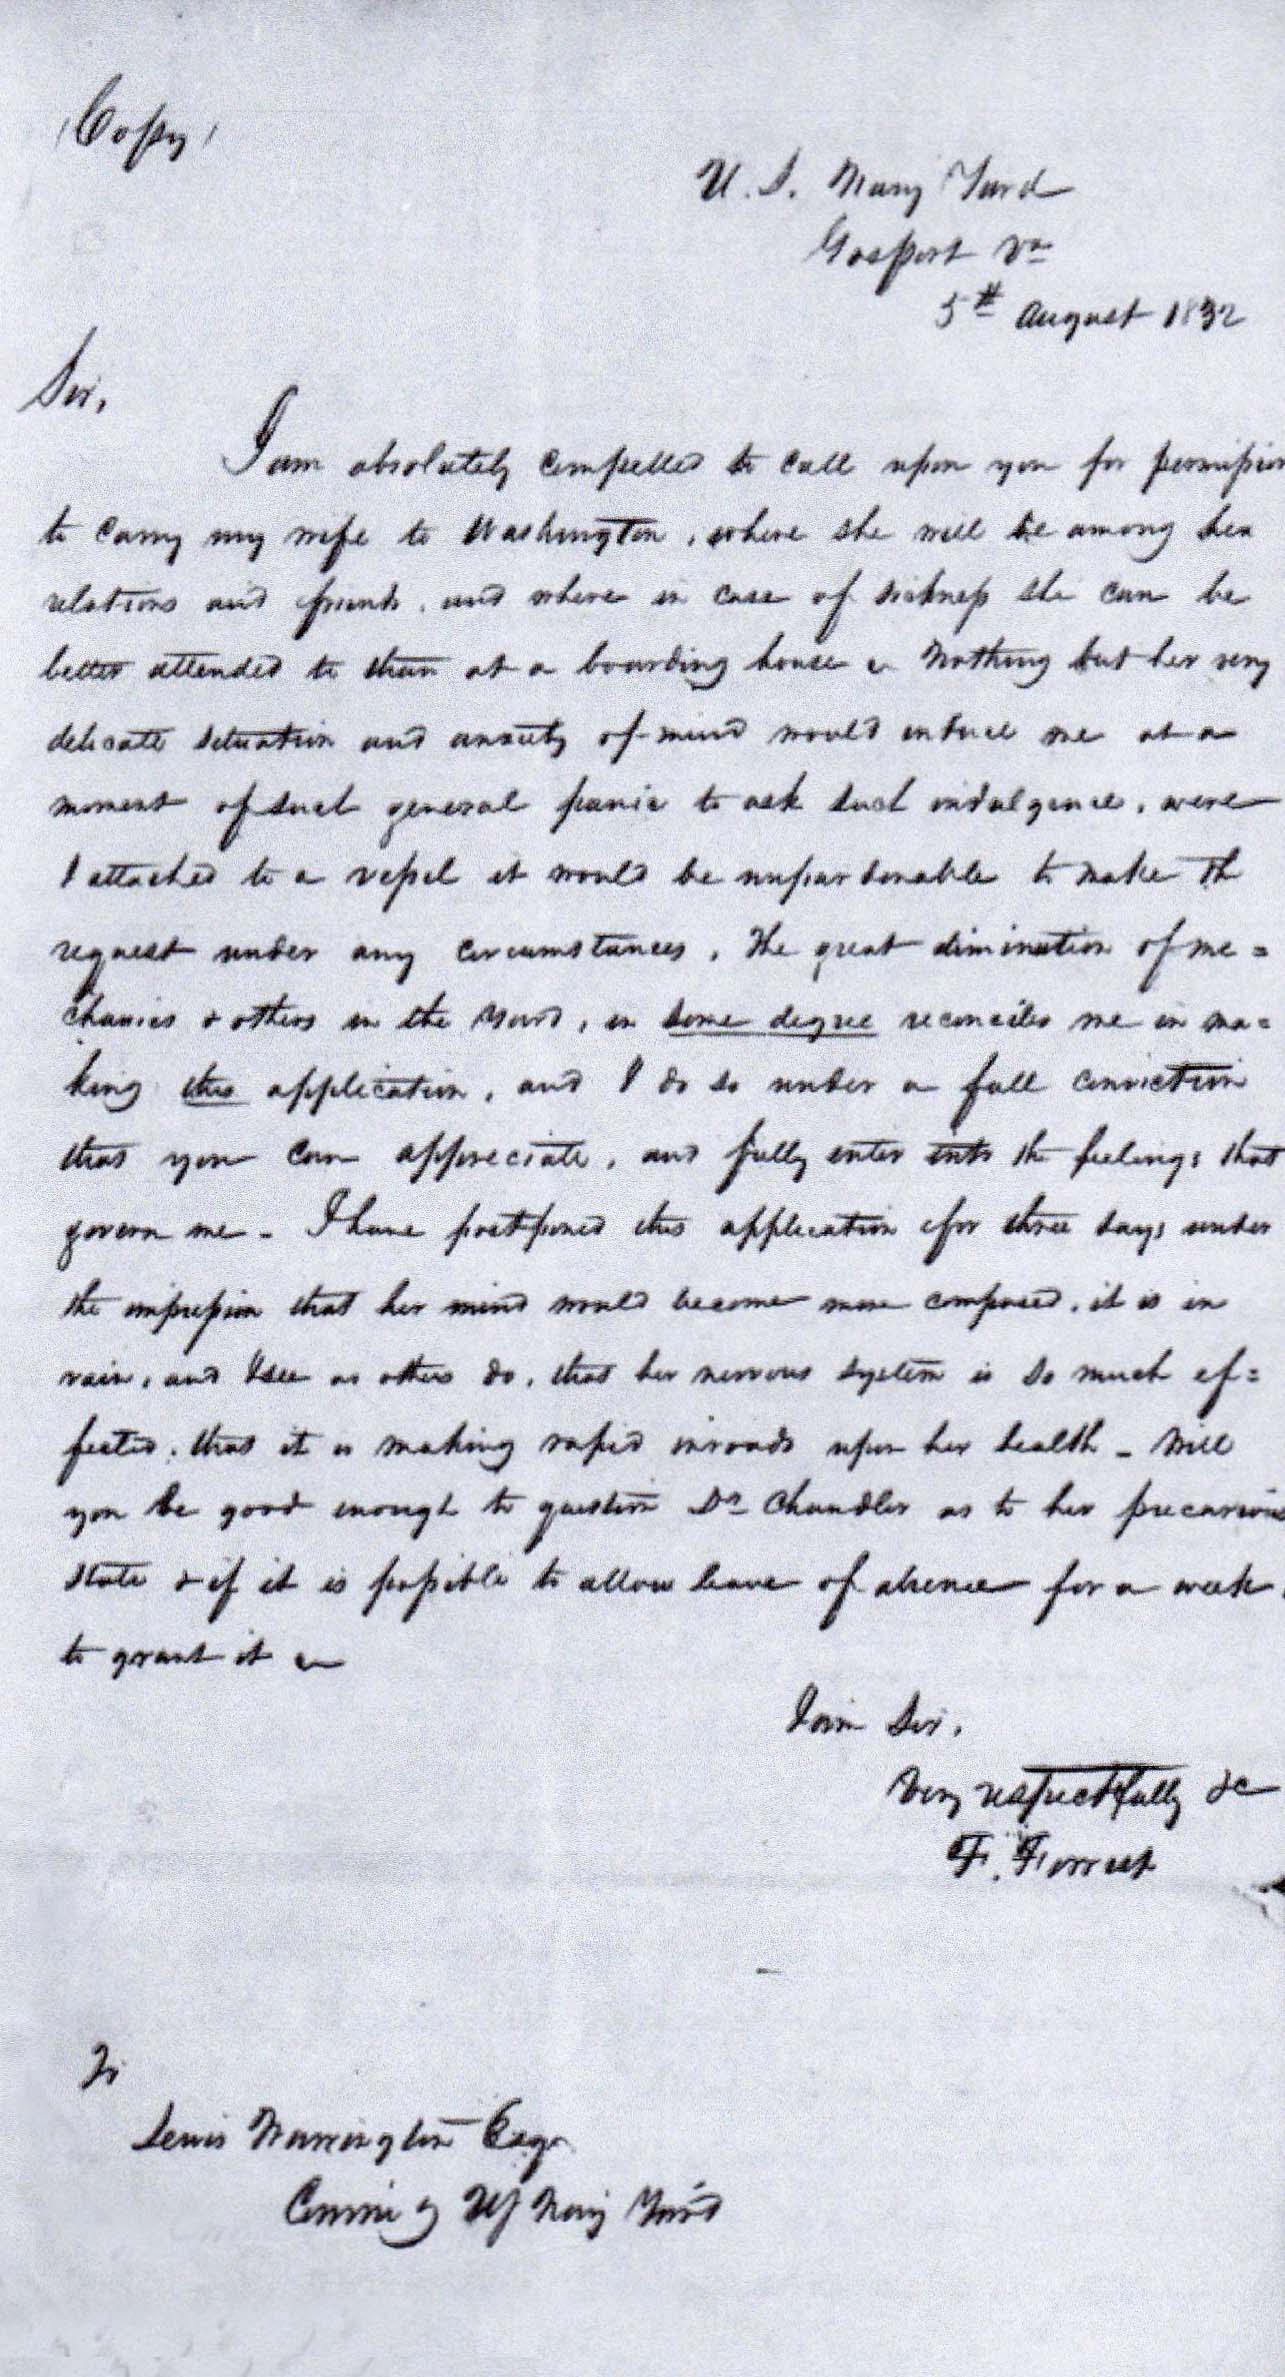 (Copy)
U. S. Navy Yard
Gosport Va
5th August 1832
Sir,
I am absolutely compelled to call upon you for permission
to carry my wife to Washington, where she will be among her
relations and friends, and where in case of sickness she can be
better attended to than at a boarding house. Nothing but her very
delicate situation and anxiety of mind would induce me at a
moment of such general panic to ask such indulgence, were
I attached to a vessel it would be unpardonable to make th
request under any circumstances. The great diminution of me=
chanics & others in the Yard, in some degree reconciles me in ma=
king this application, and I do so under a full conviction
that you can appreciate, and fully enter into the feelings that
govern me - I have postponed this application for three days under
the impression that her mind would become more composed, it is in
vain, and I see as others do, that her nervous system is so much ef=
fected, that it is making rapid inroads upon her health - Will
you be good enough to question Dr Chandler as to her precarious
state & if it is possible to allow leave of absence for a week,
to grant it
I am Sir,
Very respectfully &c
F. Forrest
To
Lewis Warrington Esqr
Comm'g US Navy Yard